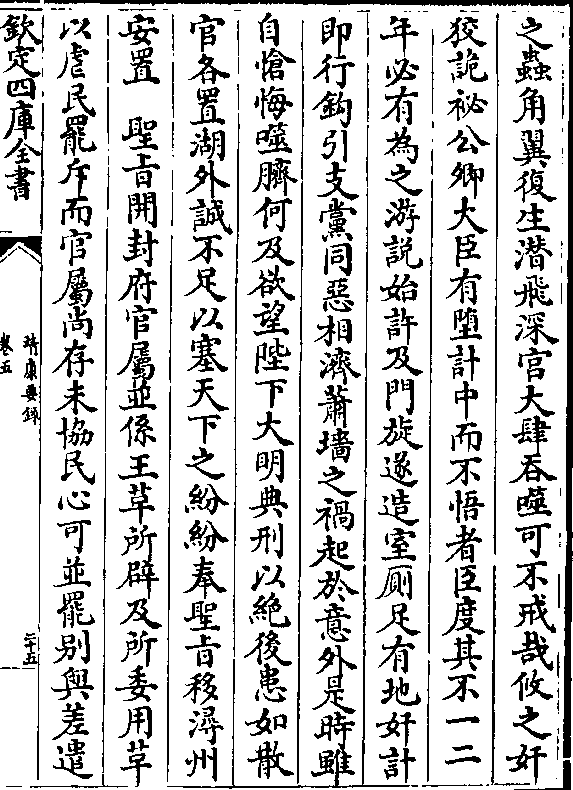 之蟲角翼復生潜飛深宫大肆吞噬可不戒哉攸之奸
狡詭祕公卿大臣有墮計中而不悟者臣度其不一二
年必有為之游說始許及門旋遂造室厠足有地奸計
即行鈎引支黨同惡相濟蕭墻之禍起於意外是時雖
自愴悔噬臍何及欲望陛下大明典刑以絶後患如散
官各置湖外誠不足以塞天下之紛紛奉聖旨移潯州
安置　聖旨開封府官屬並係王革所辟及所委用革
以虐民罷斥而官屬尚存未協民心可並罷别與差遣
欽定四庫全書
靖康要録
卷五
二十五